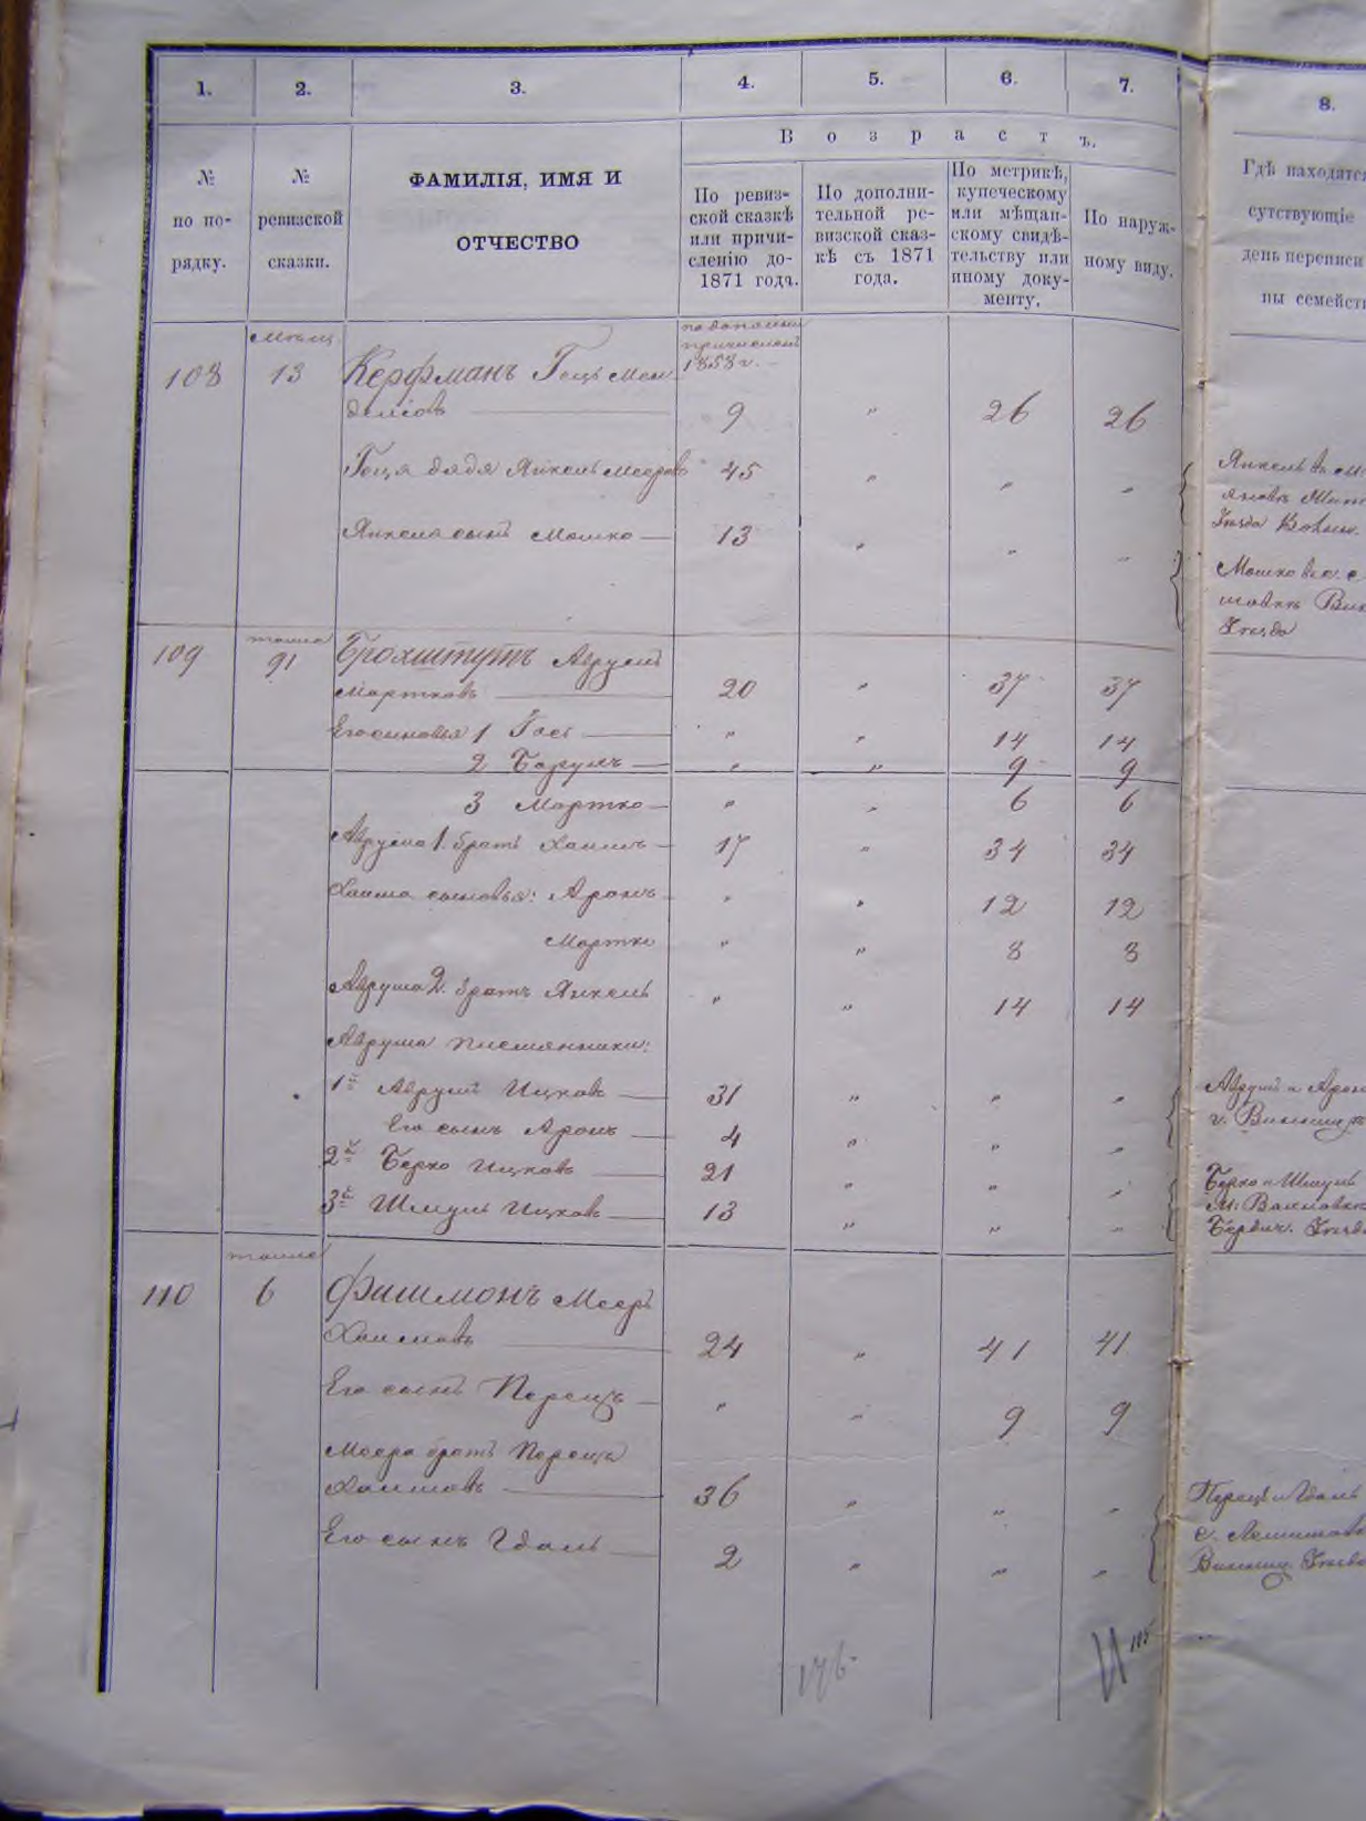 1. 2. 3. 4. 5. 6. 7. 8.
Возрастъ.
№ по по-рядку.
№ ревизской сказки.
ФАМИЛІЯ, ИМЯ И
ОТЧЕСТВО
По ревиз-
ской сказкѣ
или причи-
сленію до-
1871 года.
По дополни-
тельной ре-
визской сказ-
кѣ съ 1871
года.
По метрикѣ,
купеческому
или мѣщан-
скому свидѣ-
тельству или
иному доку-
менту.
По наруж-
ному виду.
Гдѣ находятся
сутствующіе
день переписи
ны семейст
1858 г.
108 13 Керфманъ Гецъ Мен
делiовъ 9 " 26 26
Геця дядя Янкель Мееровъ 45 " " "
Янкель
Янкеля сынъ Мошко 13 " " "
Мошко
109 91 Брохштутъ Аврумъ
Мортковъ 20 " 37 37
Его сыновья 1 Гось " " 14 14
2 Борухъ " " 9 9
3 Мортко " " 6 6
Аврума 1. братъ Хаимъ 17 " 34 34
Хаима сыновья: Аронъ " " 12 12
Мортко " " 8 8
Аврума 2. братъ Янкель " " 14 14
Аврума племянники:
1й Аврумъ Ицковъ 31 " " "
Аврумъ и Арон
Его сынъ Аронъ 4 " " "
2й Берко Ицковъ 21 " " "
Берко и Шмуль
3й Шмуль Ицковъ 13 " " "
110 6 Фишманъ Мееръ
Хаимовъ 24 " 41 41
Его сынъ Перецъ " " 9 9
Меера братъ Перецъ
Хаимовъ 36 " " "
Перецъ и Удаль
Его сынъ Удаль 2 " " "